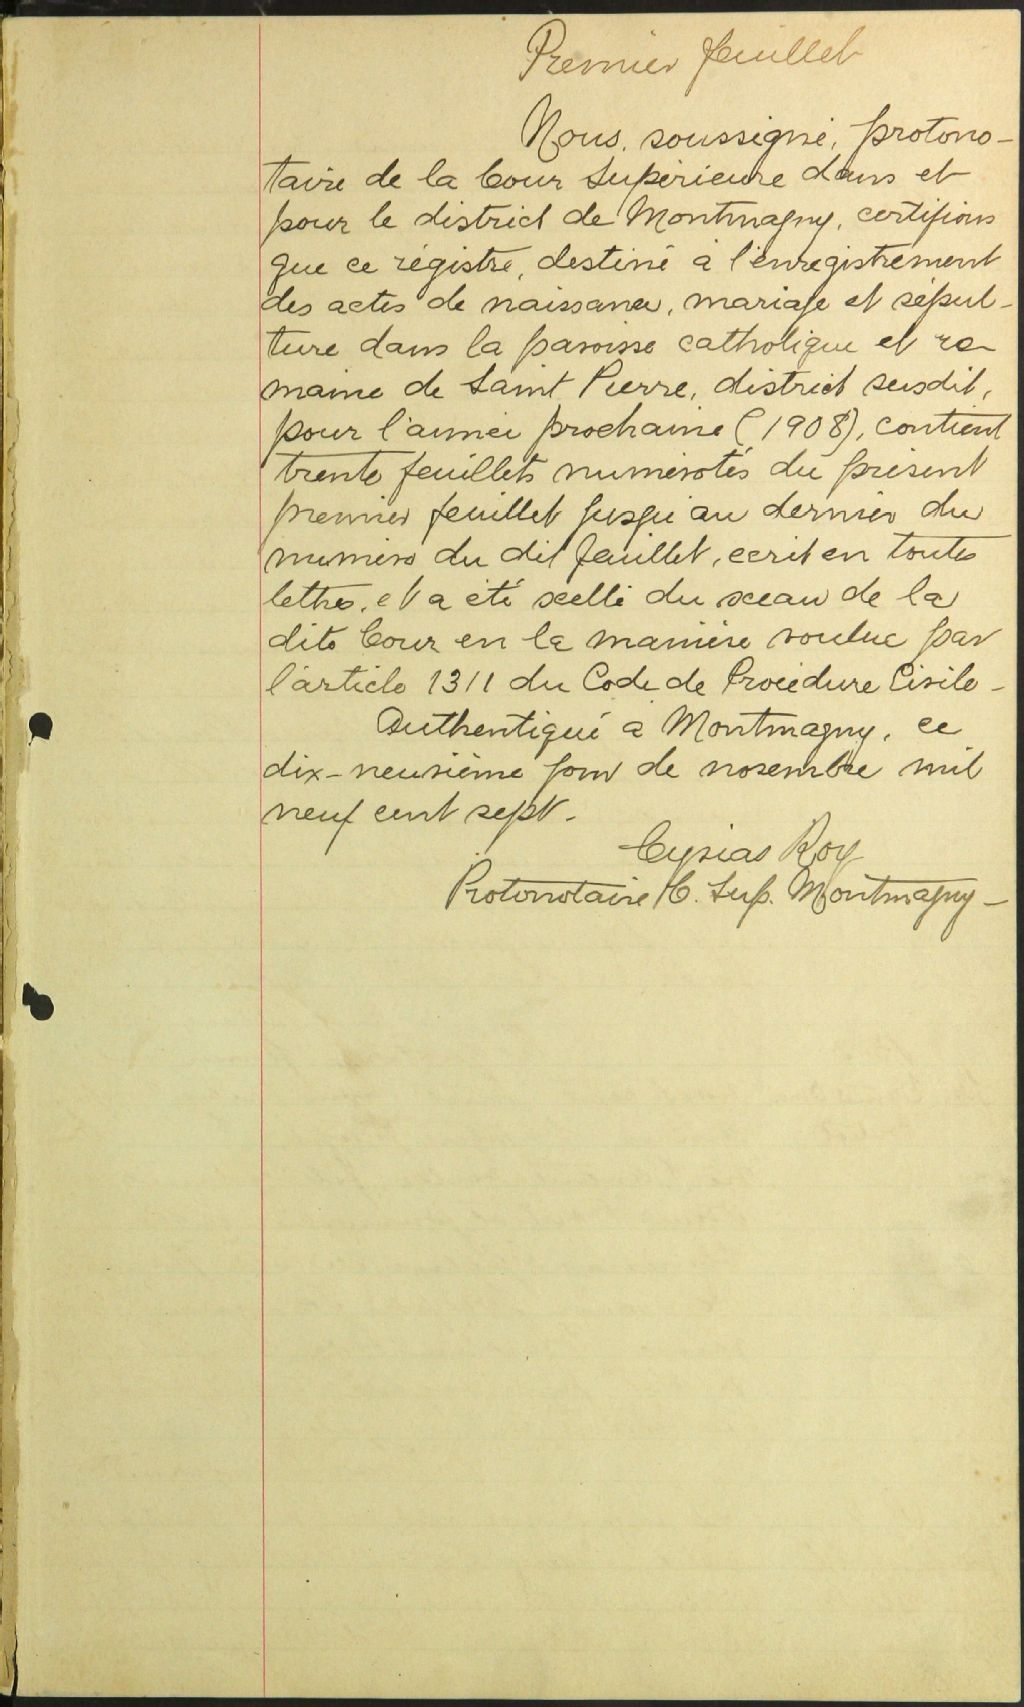 Premier feuillet
Nous, soussigné, protono-
taire de la Cour Supérieure dans et
pour le district de Montmagny, certifions
que ce régistre, destiné à l'enregistrement
des actes de naissance, mariage et sépul-
ture dans la paroisse catholique et ro-
maine de Saint Pierre, district susdit,
pour l'année prochaine (1908), contient
trente feuillets numérotés du présent
premier feuillet jusqu'au dernier du
numéro du dit feuillet, ecrit en toutes
lettres, et a été scellé du sceau de la
dite Cour en la manière voulue par
l'article 1311 du Code de Procédure Civile -
Authentiqué à Montmagny, ce
dix-neuvième jour de novembre mil
neuf cent sept.
Cysias Roy
Protonotaire C. Sup. Montmagny -